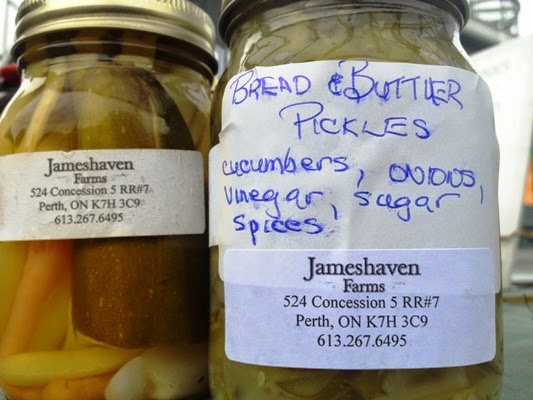 Jameshaven
Farms
524 Concession 5 RR#7
Perth, ON K7H 3C9
613.267.6495
BREAD & BUTTER
PICKLES
cucumbers, onions,
vinegar, sugar
spices
Jameshaven
Farms
524 Concession 5 RR#7
Perth, ON K7H 3C9
613.267.6495